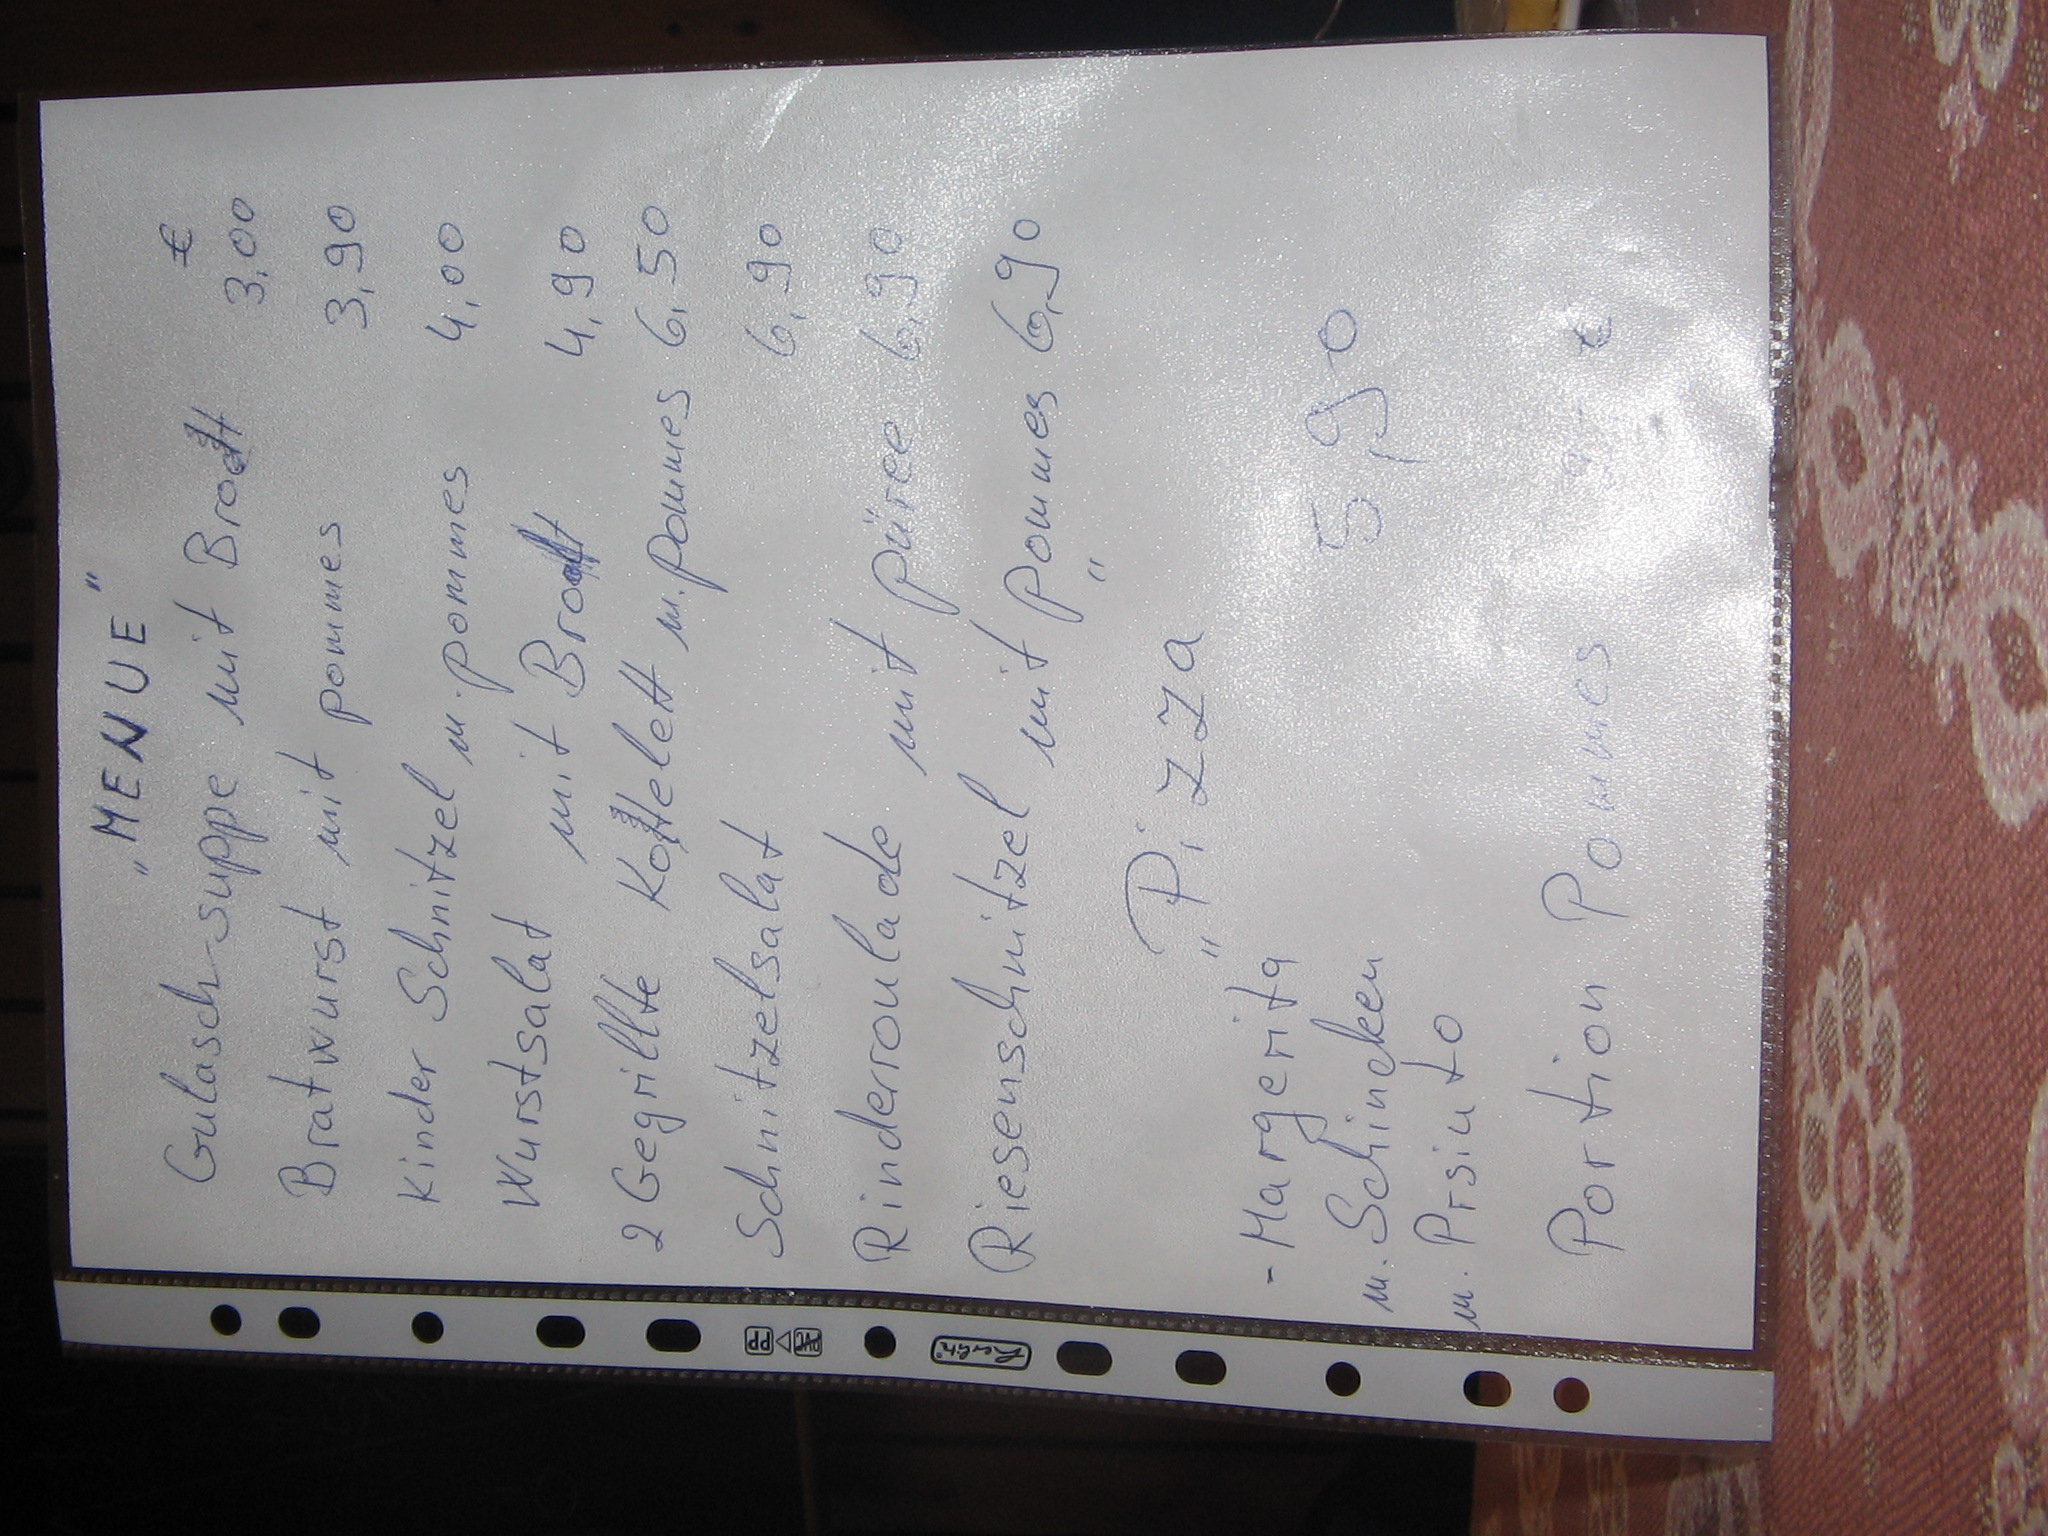 „MENUE"
€
Gulasch-suppe mit Brot 3,00
Bratwurst mit pommes 3,90
Kinder Schnitzel m. pommes 4,00
Wurstsalat mit Brot 4,90
2 Gegrillte Kotelett m. pommes 6,50
Schnitzelsalat 6,90
Rinderroulade mit püree 6,90
Riesenschnitzel mit Pommes 6,90
„Pizza"
- Margerita
m. Schincken 5,90
m. Prsiuto
Portion Pommes €
PP PVC